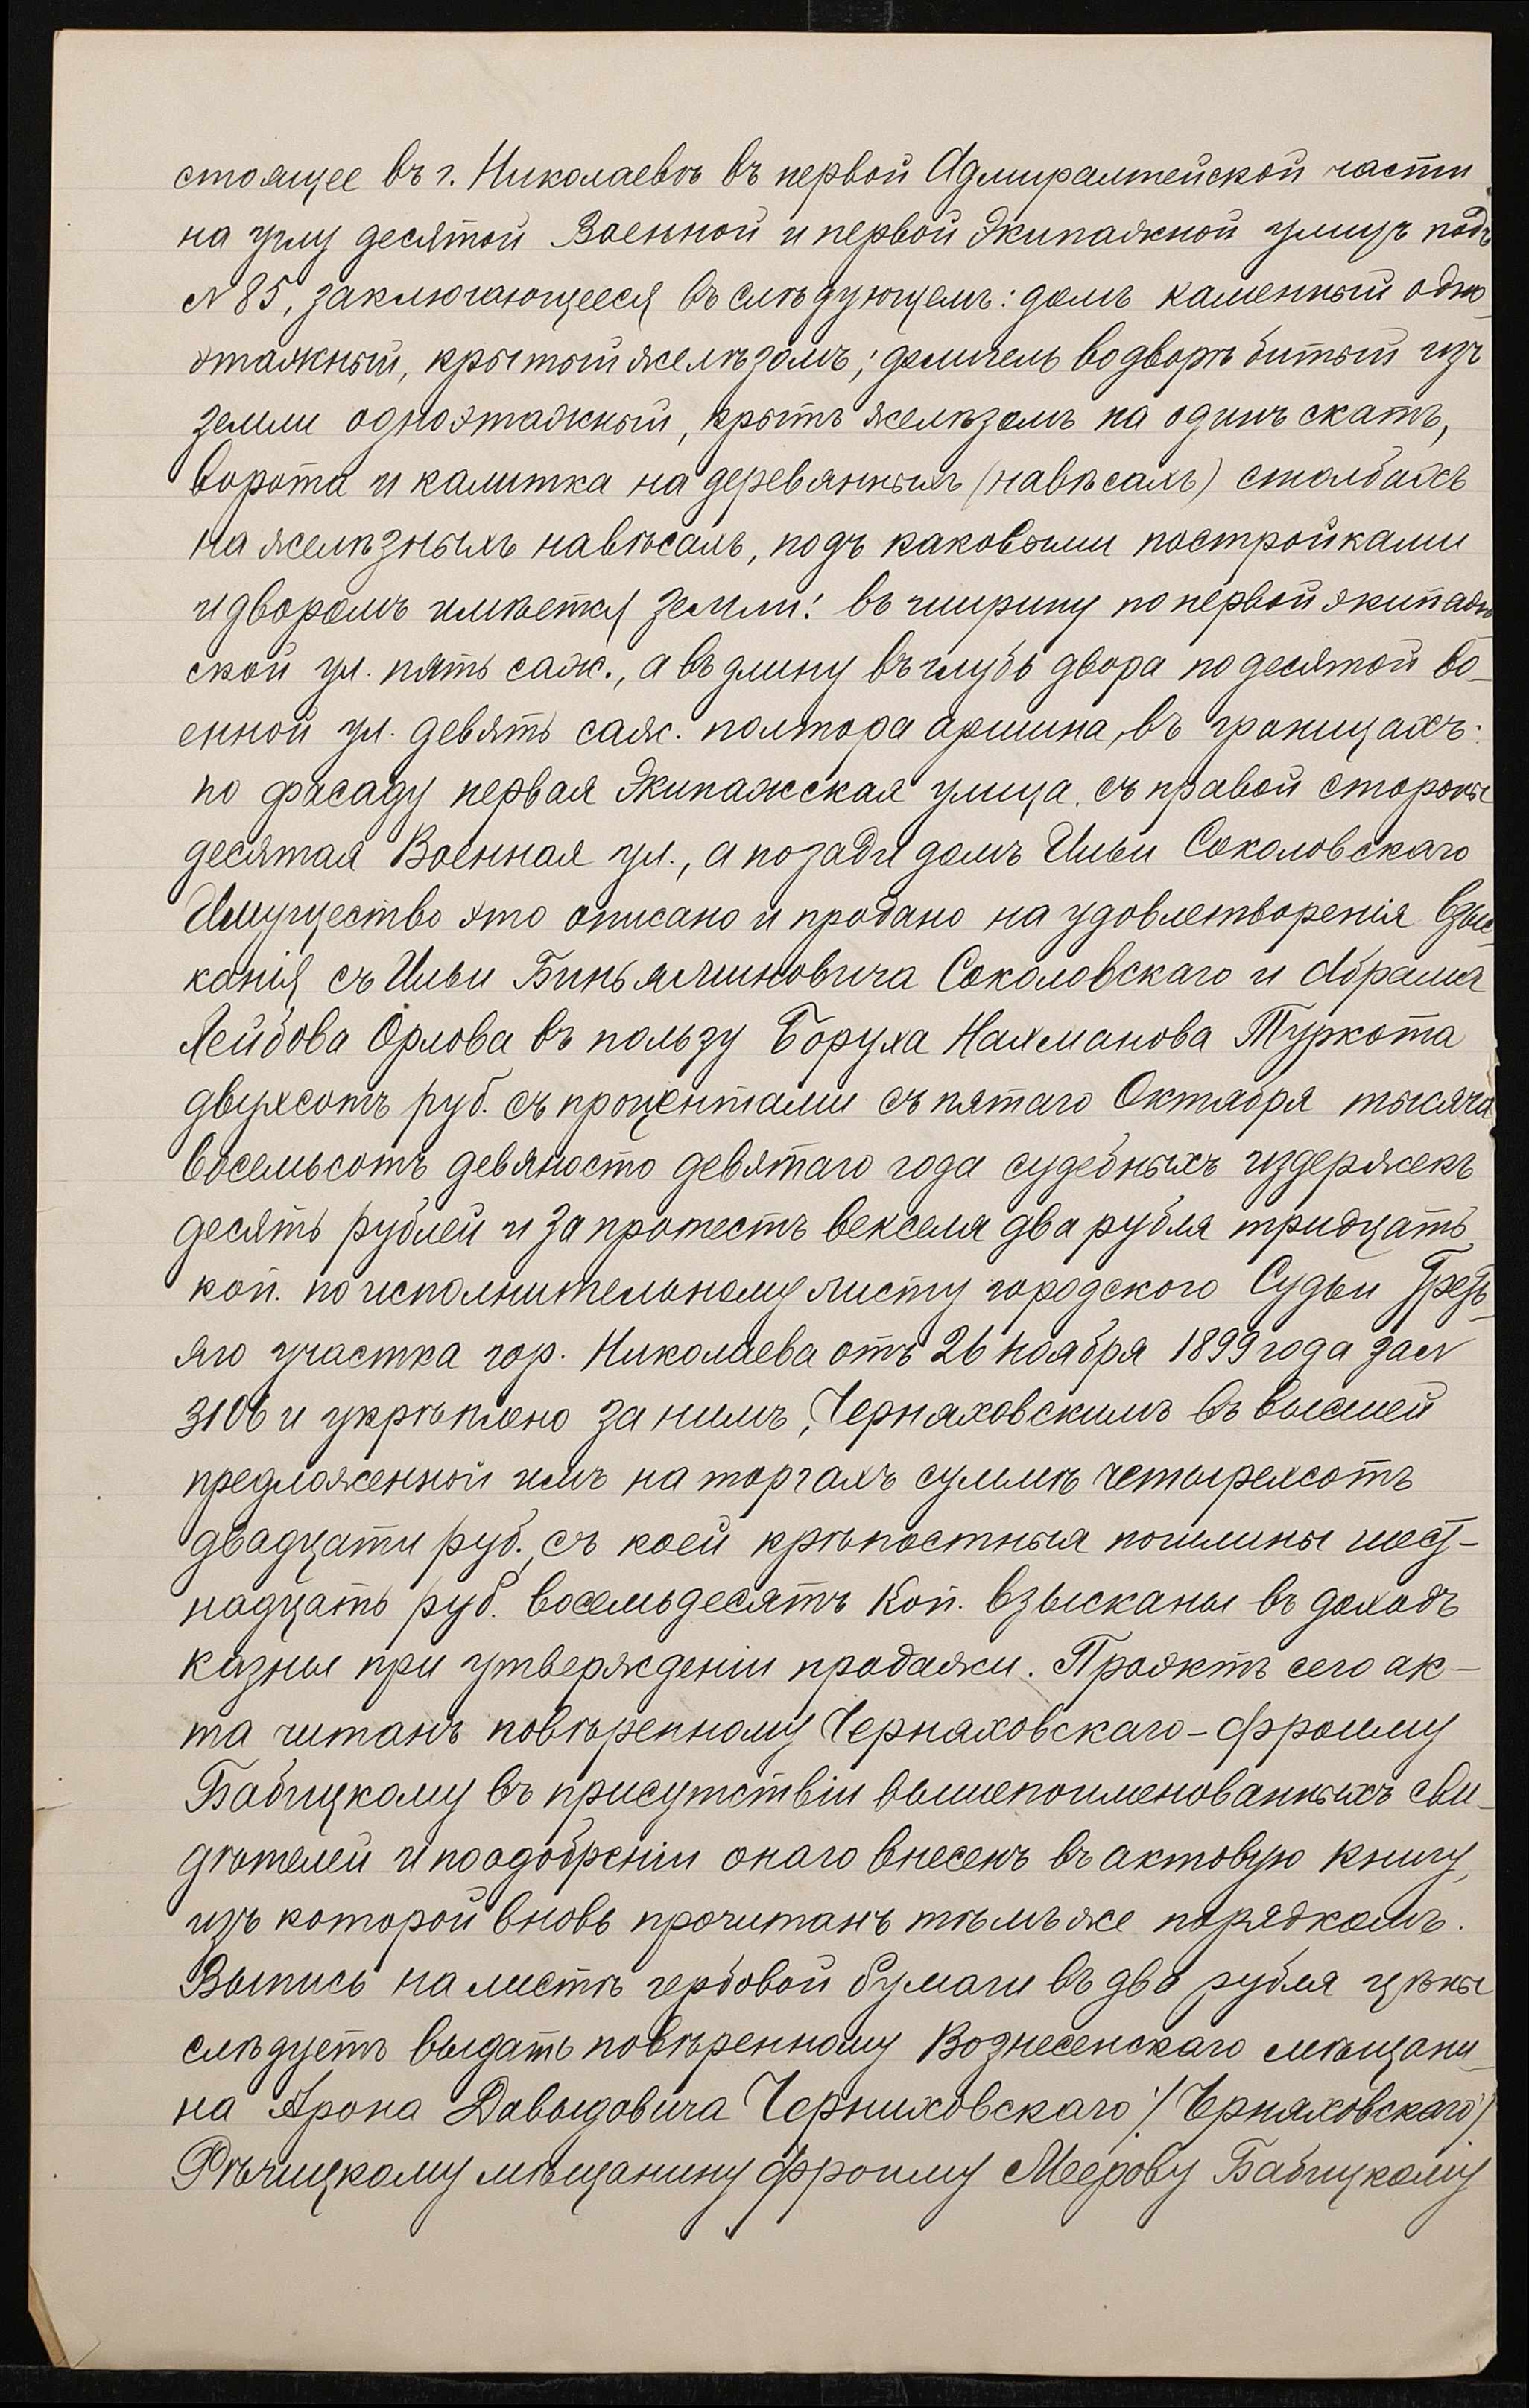 стоящее въ г. Николаевѣ въ первой Адмиралтейской части
на углу десятой Военной и первой Экипажной улицъ подъ
№ 85, заключающееся въ слѣдующемъ: домъ каменный одно-
этажный, крытый желѣзомъ; флигель во дворѣ битый изъ
земли одноэтажный, крытъ желѣзомъ на одинъ скатъ,
ворота и калитка на деревянныхъ (навѣсахъ) столбахъ
на желѣзныхъ навѣсахъ, подъ каковыми постройками
и дворомъ имѣется земли: въ ширину по первой экипаж
ской ул. пять саж., а въ длину въ глубь двора по десятой во-
енной ул. девять саж. полтора аршина, въ границахъ:
по фасаду первая Экипажская улица, съ правой стороны
десятая Военная ул., а позади домъ Ильи Соколовскаго
Имущество это описано и продано на удовлетворенія взыс-
канія съ Ильи Биньяминовича Соколовскаго и Абрама
Лейбова Орлова въ пользу Боруха Нахманова Туркота
двухсотъ руб. съ процентами съ пятаго Октября тысяча
восемьсотъ девяносто девятаго года судебныхъ издержекъ
десять рублей и за протестъ векселя два рубля тридцать
коп. по исполнительному листу городского Судьи Треть-
яго участка гор. Николаева отъ 26 ноября 1899 года за №
3106 и укрѣплено за нимъ, Черняховскимъ въ высшей
предложенной имъ на торгахъ суммѣ четырехсотъ
двадцати руб., съ коей крѣпостныя пошлины шест-
надцать руб. восемьдесятъ коп. взысканы въ доходъ
казны при утвержденіи продажи. Проэктъ сего ак-
та читанъ повѣренному Черняховскаго - Фроиму
Бабицкому въ присутствіи вышепоименованныхъ сви-
дѣтелей и по одобреніи онаго внесенъ въ актовую книгу,
изъ которой вновь прочитанъ тѣмъ же порядкомъ.
Выпись на листѣ гербовой бумаги въ два рубля цѣны
слѣдуетъ выдать повѣренному Вознесенскаго мѣщани-
на Арона Давыдовича Черниховскаго /Черняховскаго/
Рѣчицкому мѣщанину Фроиму Меерову Бабицкому